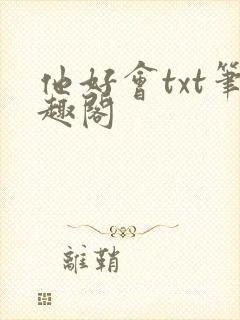 他好會txt筆
趣閣
離鞘